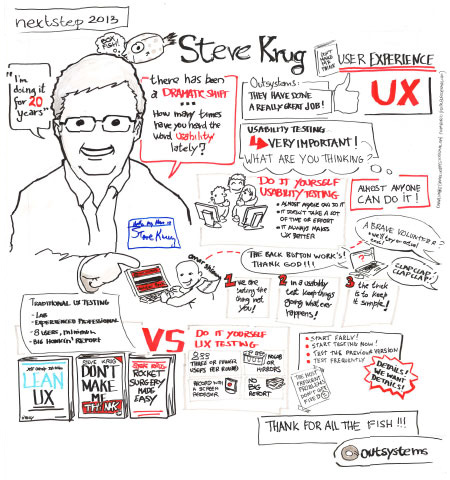 nextstep 2013
BOX FISH!
Steve Krug
DON'T MAKE ME THINK
USER EXPERIENCE
UX
"I'm
doing it
for
20
years"
there has been
a DRAMATIC SHIFT
...
How many times
have you heard the
word Usability
lately?
Outsystems:
THEY HAVE DONE
A REALLY GREAT JOB!
USABILITY TESTING
VERY IMPORTANT!
WHAT ARE YOU THINKING?
DO IT YOURSELF
USABILITY TESTING
• ALMOST ANYONE CAN DO IT
• IT DOESN'T TAKE A LOT
OF TIME OR EFFORT
• IT ALWAYS MAKES
UX BETTER
ALMOST ANYONE
CAN DO IT!
Hello My Name is
Steve Krug
A BRAVE VOLUNTEER
THE BACK BUTTON WORKS!
THANK GOD!!!
CLAP CLAP!
CLAP CLAP!
TRADITIONAL UX TESTING
- LAB
- EXPERIENCED PROFESSIONAL
- 8 USERS, MINIMUM
- BIG HONKIN' REPORT
1 we are
testing the
thing not
you!
2 in a usability
test keep things
going whatever
happens!
3 the trick
is to keep
it simple!
VS
DO IT YOURSELF
UX TESTING
THREE OR FEWER
USERS PER ROUND
NO LAB
OR MIRRORS
RECORD WITH
A SCREEN
RECORDER
NO
BIG
REPORT
• START EARLY!
• START TESTING NOW!
• TEST THE PREVIOUS VERSION
• TEST FREQUENTLY
THE MOST
FREQUENT
PROBLEMS
DON'T GET
FIXED
DETAILS!
WE WANT
DETAILS!
LEAN
UX
STEVE KRUG
DON'T
MAKE
ME
THINK
STEVE KRUG
ROCKET
SURGERY
MADE
EASY
THANK FOR ALL THE FISH!!!
outsystems